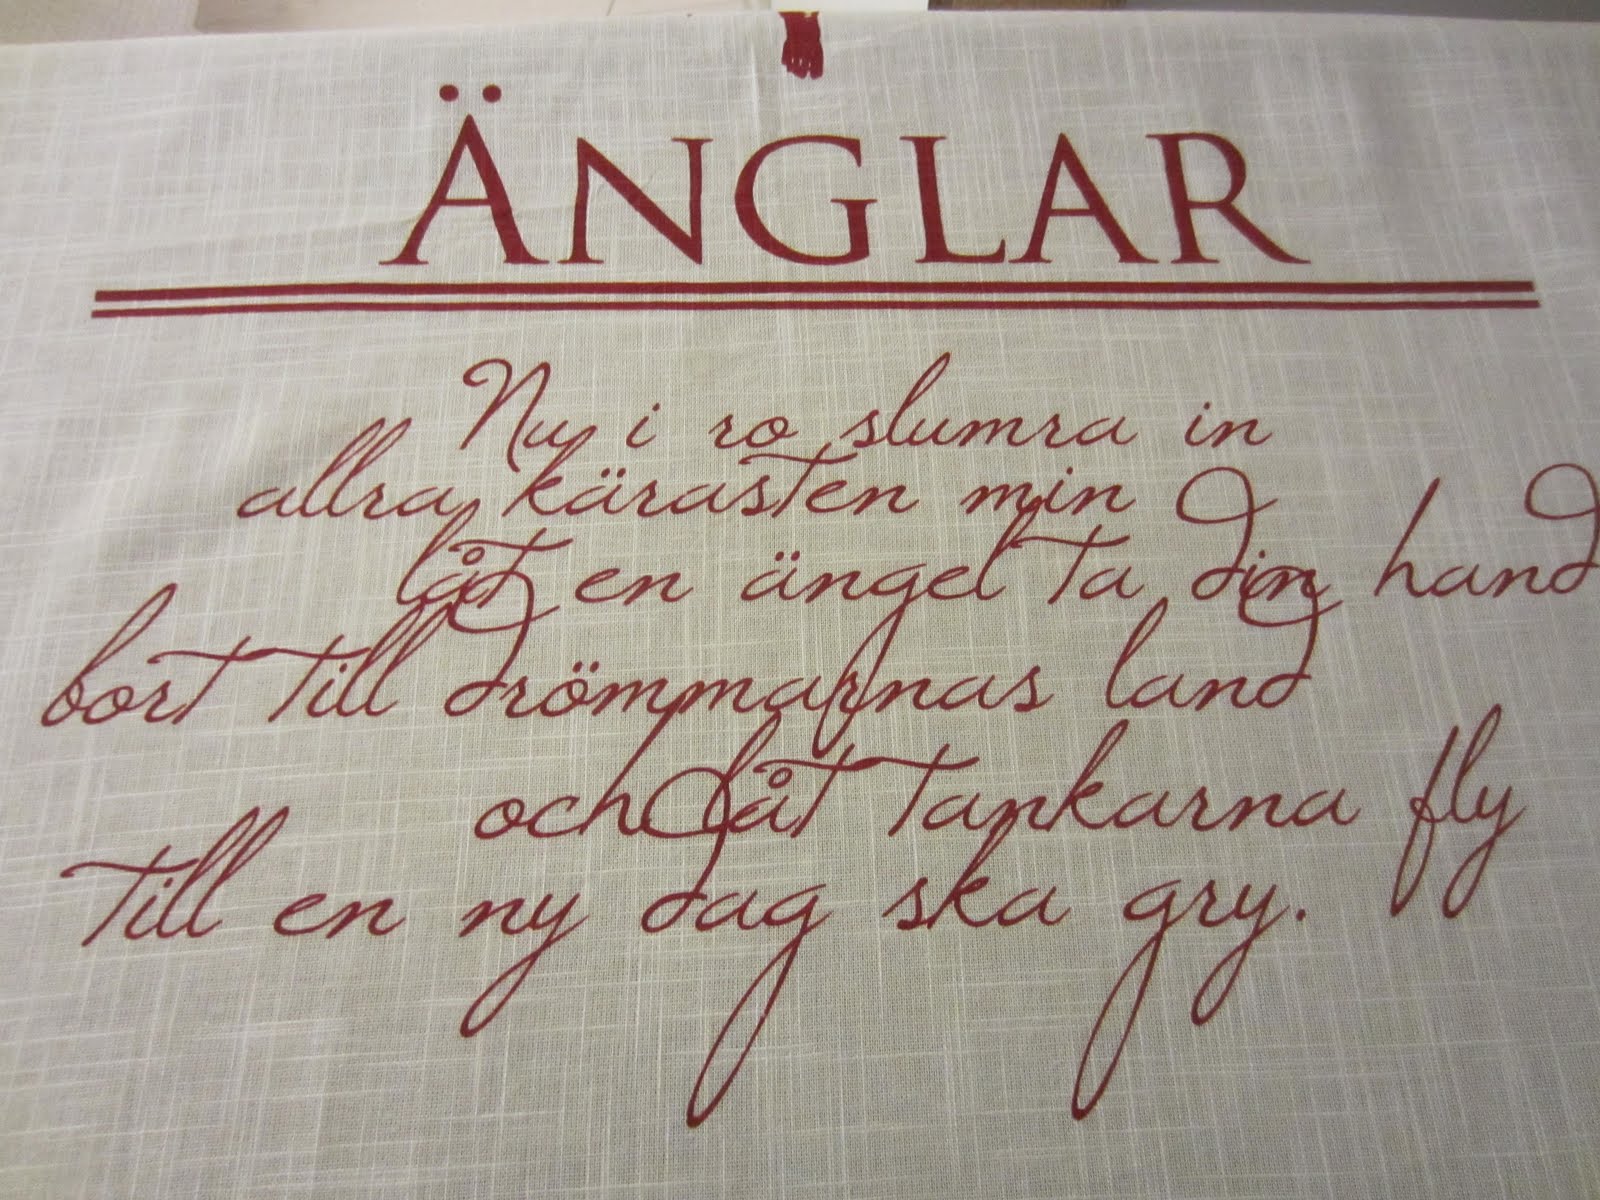 ÄNGLAR
Nu i ro slumra in
allra kärasten min
låt en ängel ta din hand
bort till drömmarnas land
och låt tankarna fly
till en ny dag ska gry.